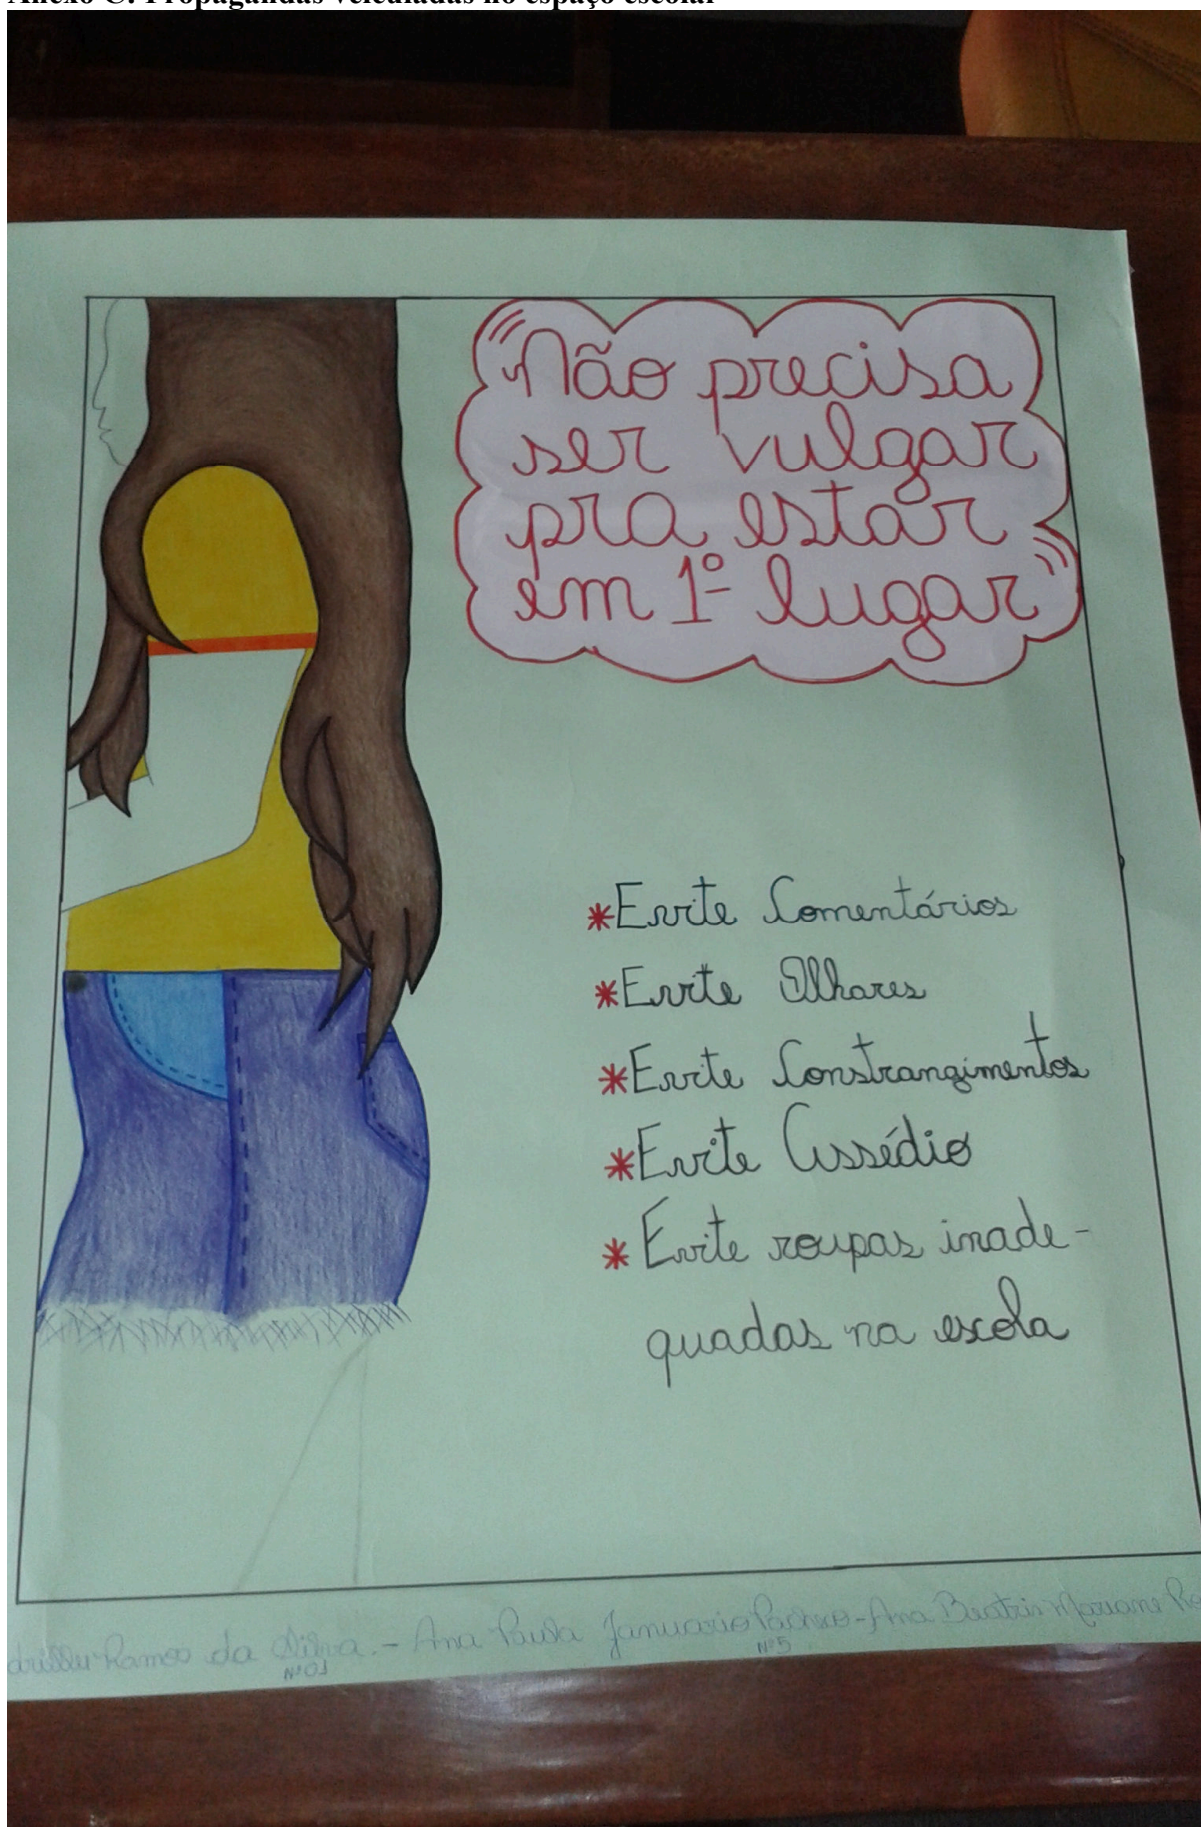 Anexo C: Propagandas veiculadas no espaço escolar
"Não precisa
ser vulgar
pra estar
em 1º lugar"
*Evite Comentários
*Evite Olhares
*Evite Constrangimentos
*Evite Assédio
*Evite roupas inade-
quadas na escola
Ramos da Silva. - Ana Paula Januario Pacheco - Ana Beatris Mariane
Nº01 Nº5